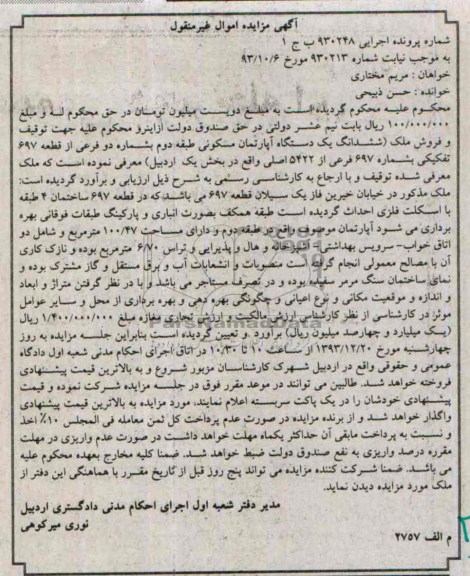 آگهی مزایده اموال غیرمنقول
شماره پرونده اجرایی ۹۳۰۲۴۸ ب ج ۱
به موجب نیابت شماره ۹۳۰۲۱۳ مورخ ۹۳/۱۰/۶
خواهان : مریم مختاری
خوانده : حسن ذبیحی
محکوم علیه محکوم گردیده است به مبلغ دویست میلیون تومان در حق محکوم له و مبلغ
۱۰۰/۰۰۰/۰۰۰ ریال بابت نیم عشر دولتی در حق صندوق دولت ازاینرو محکوم علیه جهت توقیف
و فروش ملک (ششدانگ یک دستگاه آپارتمان مسکونی طبقه دوم بشماره دو فرعی از قطعه ۶۹۷
تفکیکی بشماره ۶۹۷ فرعی از ۵۴۲۲ اصلی واقع در بخش یک اردبیل) معرفی نموده است که ملک
معرفی شده توقیف و با ارجاع به کارشناسی رسمی به شرح ذیل ارزیابی و برآورد گردیده است:
ملک مذکور در خیابان خیرین فاز یک سبلان قطعه ۶۹۷ می باشد که در قطعه ۶۹۷ ساختمان ۴ طبقه
با اسکلت فلزی احداث گردیده است طبقه همکف بصورت انباری و پارکینگ طبقات فوقانی بهره
برداری می شود آپارتمان موصوف واقع در طبقه دوم و دارای مساحت ۱۰۰/۴۷ مترمربع و شامل دو
اتاق خواب- سرویس بهداشتی- آشپزخانه و هال و پذیرایی و تراس ۶/۷۰ مترمربع بوده و نازک کاری
آن با مصالح معمولی انجام گرفته است منصوبات و انشعابات آب و برق مستقل و گاز مشترک بوده و
نمای ساختمان سنگ مرمر سفید بوده و در تصرف مستاجر می باشد و با در نظر گرفتن متراژ و ابعاد
و اندازه و موقعیت مکانی و نوع اعیانی و چگونگی بهره دهی و بهره برداری از محل و سایر عوامل
موثر در کارشناسی از نظر کارشناس ارزش مالکیت و ارزش تجاری مغازه مبلغ ۱/۴۰۰/۰۰۰/۰۰۰ ریال
(یک میلیارد و چهارصد میلیون ریال) برآورد و تعیین گردیده است بنابراین جلسه مزایده به روز
چهارشنبه مورخ ۱۳۹۳/۱۲/۲۰ از ساعت ۱۰ تا ۱۰/۳۰ در اتاق اجرای احکام مدنی شعبه اول دادگاه
عمومی و حقوقی واقع در اردبیل شهرک کارشناسان مزبور شروع و به بالاترین قیمت پیشنهادی
فروخته خواهد شد. طالبین می توانند در موعد مقرر فوق در جلسه مزایده شرکت نموده و قیمت
پیشنهادی خودشان را در یک پاکت سربسته اعلام نمایند، مورد مزایده به بالاترین قیمت پیشنهادی
واگذار خواهد شد و از برنده مزایده در صورت عدم پرداخت کل ثمن معامله فی المجلس ۱۰٪ اخذ
و نسبت به پرداخت مابقی آن حداکثر یکماه مهلت خواهد داشت در صورت عدم واریزی در مهلت
مقرره درصد واریزی به نفع صندوق دولت ضبط خواهد شد. ضمنا کلیه مخارج بعهده محکوم علیه
می باشد. ضمنا شرکت کننده مزایده می تواند پنج روز قبل از تاریخ مقرر با هماهنگی این دفتر از
ملک مورد مزایده دیدن نماید.
مدیر دفتر شعبه اول اجرای احکام مدنی دادگستری اردبیل
نوری میرکوهی
م الف ۲۷۵۷